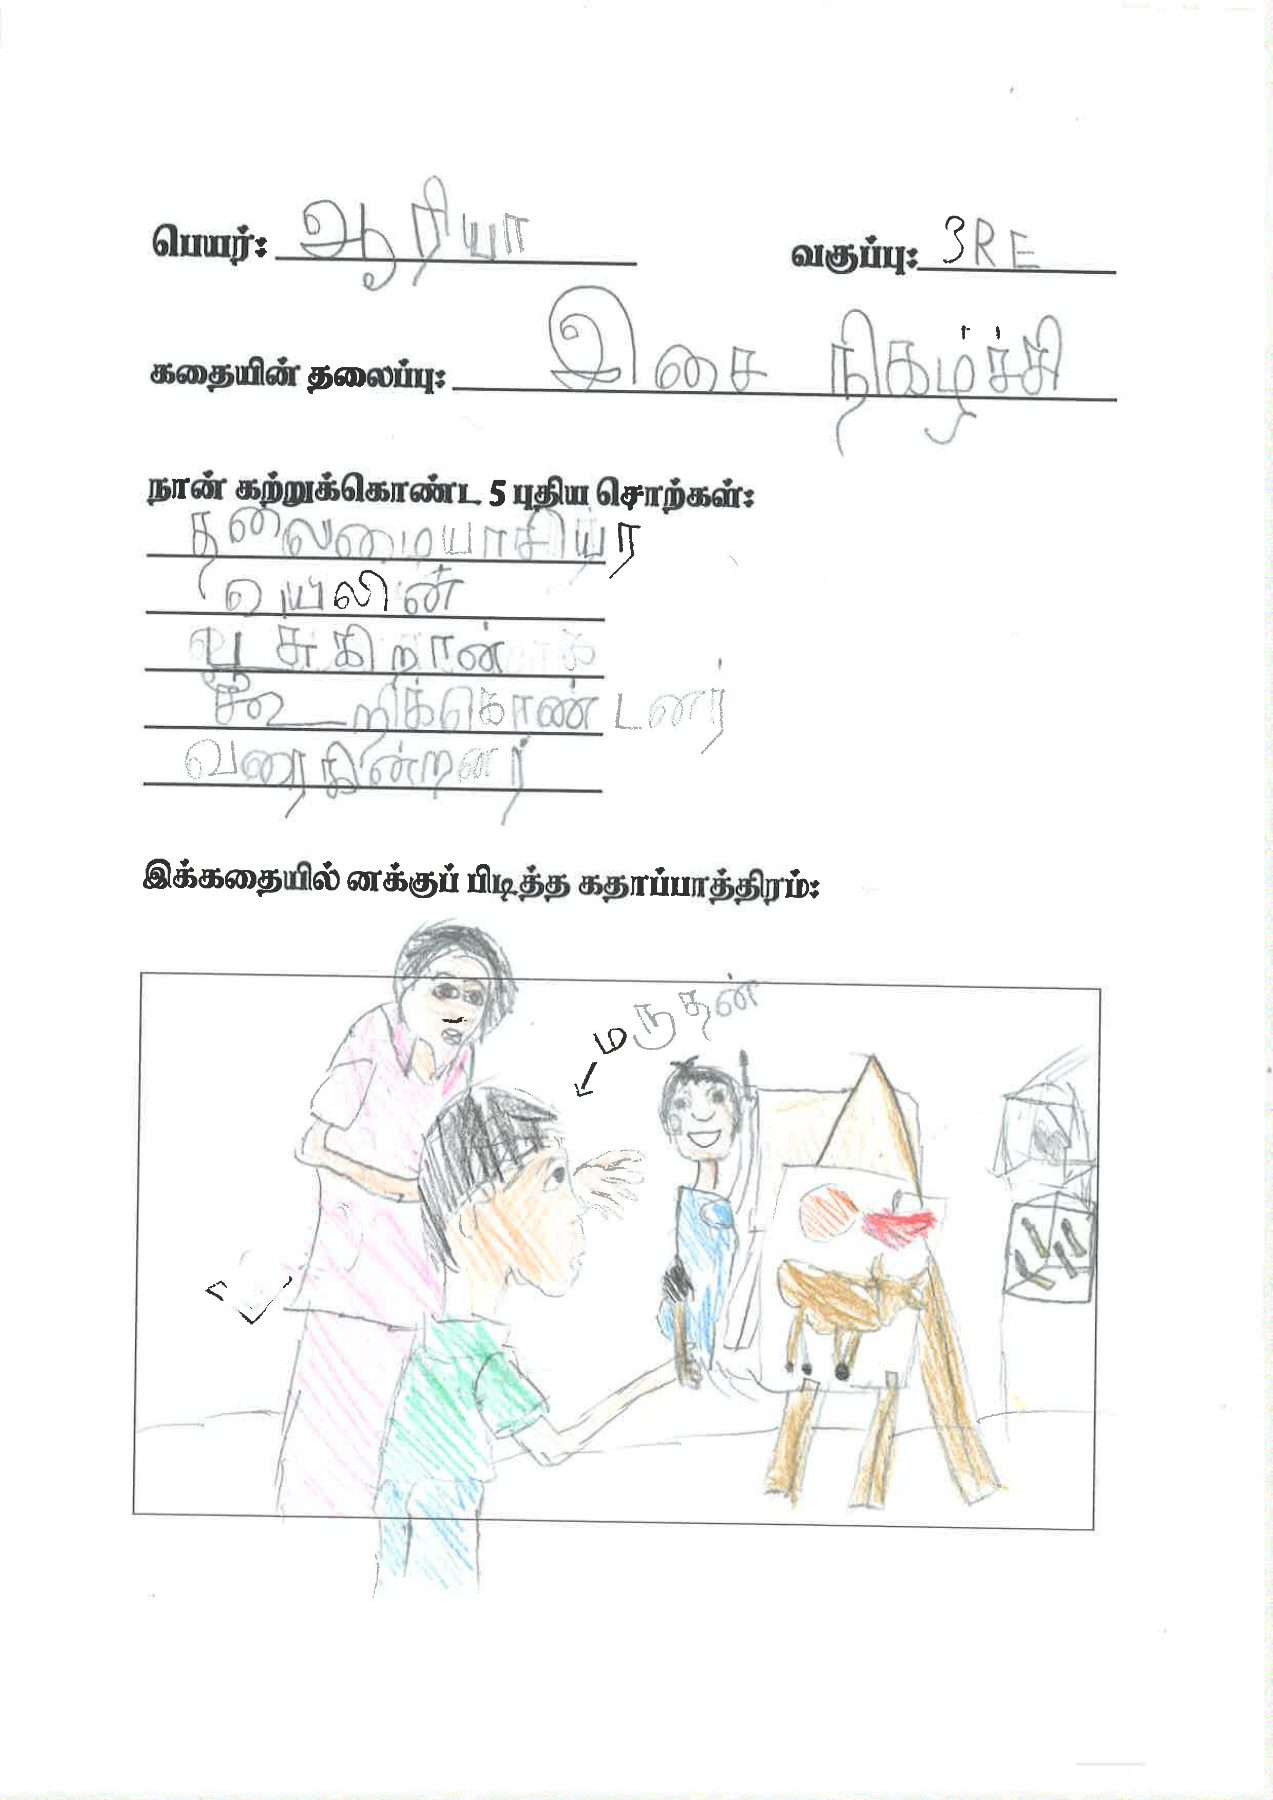 பெயர்: ஆரியா வகுப்பு: 3RE
கதையின் தலைப்பு: இசை நிகழ்ச்சி
நான் கற்றுக்கொண்ட 5 புதிய சொற்கள்:
தலைமையாசியர
வெயிலின்
பூசுகிறான்
கூறிக்கொண்டனர்
வரைகின்றனர்
இக்கதையில் னக்குப் பிடித்த கதாப்பாத்திரம்: